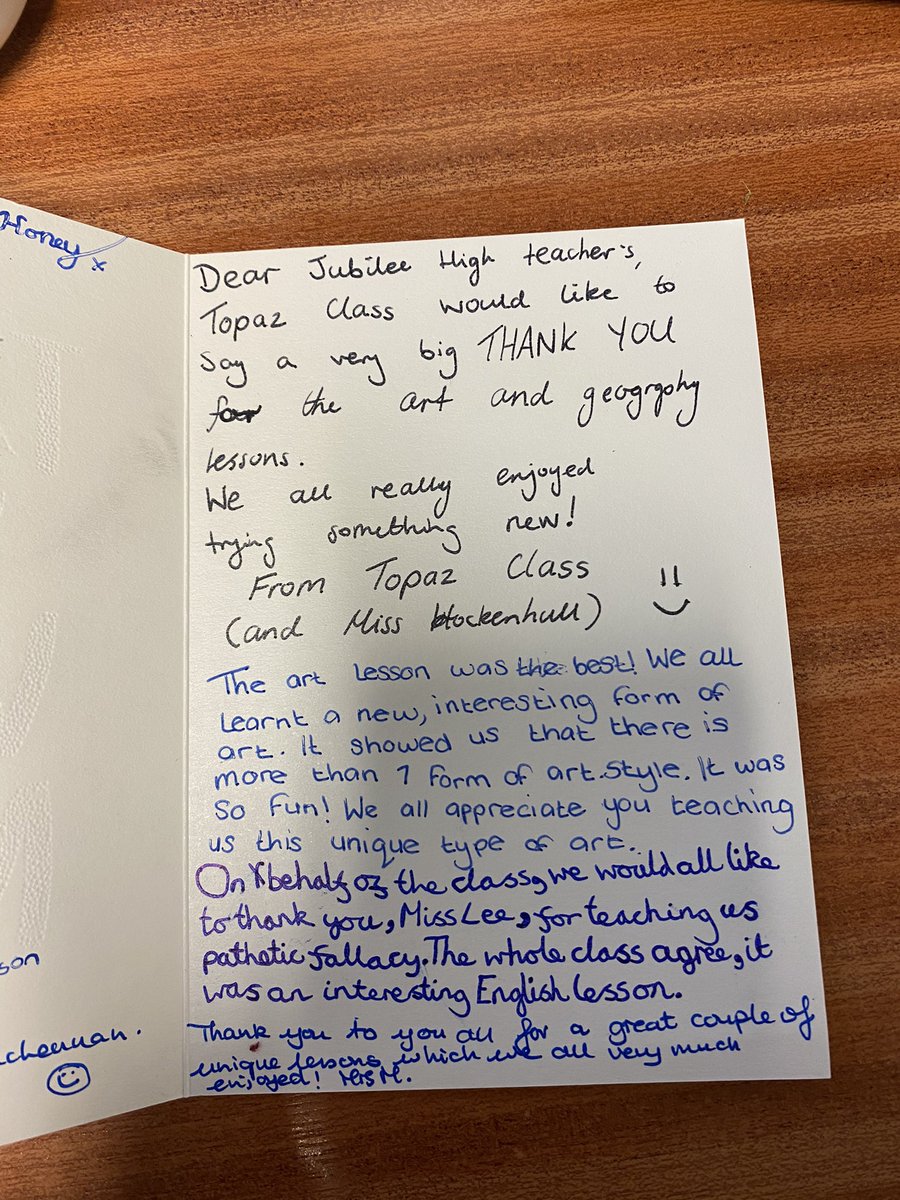 Honey x
son
chennan.
Dear Jubilee High teacher's,
Topaz Class would like to
say a very big THANK YOU
for the art and geogrpahy
lessons.
We all really enjoyed
trying something new!
From Topaz Class
(and Miss Hockenhull)
The art lesson was the best! We all
learnt a new, interesting form of
art. It showed us that there is
more than 1 form of art style. It was
so fun! We all appreciate you teaching
us this unique type of art.
On behalf of the class, we would all like
to thank you, Miss Lee, for teaching us
pathetic fallacy. The whole class agree, it
was an interesting English lesson.
Thank you to you all for a great couple of
unique lessons which we all very much
enjoyed! Mrs M.